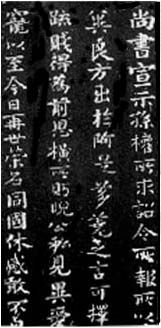 尚書宣示孫權所求詔令所報所以
冀良方出於阿是芻蕘之言可擇
疎賤得為前恩橫所盱睨公私見異愛
寵以至今日再世榮名同國休慼敢不